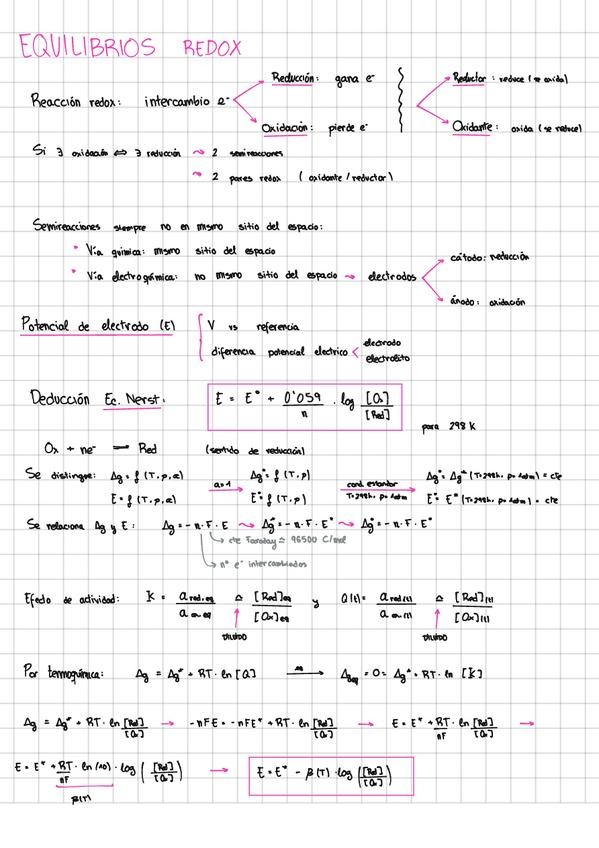 EQUILIBRIOS REDOX
Reducción: gana e⁻
Reductor: reduce (se oxida)
Reacción redox: intercambio e⁻
Oxidación: pierde e⁻
Oxidante: oxida (se reduce)
Si ∃ oxidación ⇔ ∃ reducción ⤳ 2 semireacciones
⤳ 2 pares redox (oxidante/reductor)
Semireacciones siempre no en mismo sitio del espacio:
• Vía química: mismo sitio del espacio
• Vía electroquímica: no mismo sitio del espacio → electrodos
cátodo: reducción
ánodo: oxidación
Potencial de electrodo (E) { V vs referencia
diferencia potencial electrico < electrodo
electrolito
Deducción Ec. Nerst: E = E° + 0'059/n · log [Ox]/[Red]
para 298 K
Ox + ne⁻ = Red (sentido de reducción)
Se distingue: Δg = f (T, p, a) a=1 → Δg° = f (T, p) cond. estandar T=298k, p=1atm → Δg° = Δg° (T=298k, p=1atm) = cte
E = f (T, p, a) E° = f (T, p) E° = E° (T=298k, p=1atm) = cte
Se relaciona Δg y E: Δg = -n·F·E ⤳ Δg° = -n·F·E° ⤳ Δg° = -n·F·E°
cte Faraday ≃ 96500 C/mol
nº e⁻ intercambiados
Efecto de actividad: K = a red,eq / a ox,eq ≃ [Red]eq / [Ox]eq y Q(t) = a red(t) / a ox(t) ≃ [Red](t) / [Ox](t)
diluido diluido
Por termoquímica: Δg = Δg° + RT·ln[Q] → Δg eq = 0 = Δg° + RT·ln[K]
Δg = Δg° + RT·ln [Red]/[Ox] → -nFE = -nFE° + RT·ln [Red]/[Ox] → E = E° + RT/nF · ln [Red]/[Ox] →
E = E° + RT/nF · ln(10) · log ([Red]/[Ox]) → E = E° - β(T) · log ([Red]/[Ox])
β(T)